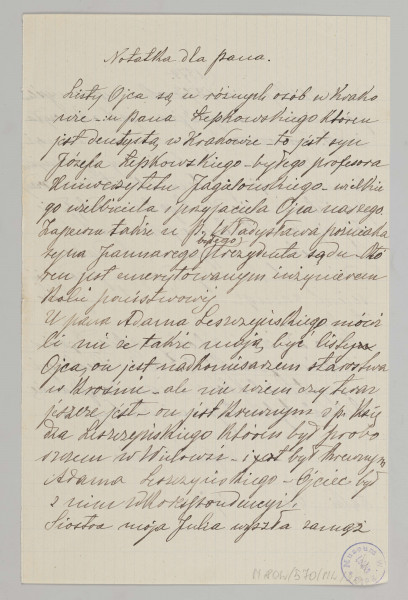 Notatka dla pana.
Listy Ojca są u różnych osób w Krako
wie - u pana Łepkowskiego którem
jest dentystą w Krakowie - to jest syn
Józefa Łepkowskiego - byłego profesora
Uniwersytetu Jagielońskiego - wielkie
go wielbiciela i przyjaciela Ojca naszego
także u P. Władysława
syna byłego Prezydenta sądu - Któ
rem jest emerytowanym inżynierem
Kolei państwowej
U pana Adama Leszczyńskiego mówi
li mi że także mogą być listy
Ojca, on jest nadkomisarzem starostwa
w Krośnie - ale nie wiem czy teraz
jeszcze jest - on jest krewnym ś p. Księ
dza Leszczyńskiego którem był probo
szczem w - i był krewnym
Adama Leszczyńskiego - Ojciec był
z nim w korespondencyi.
Siostra moja Julia wyszła zamąż